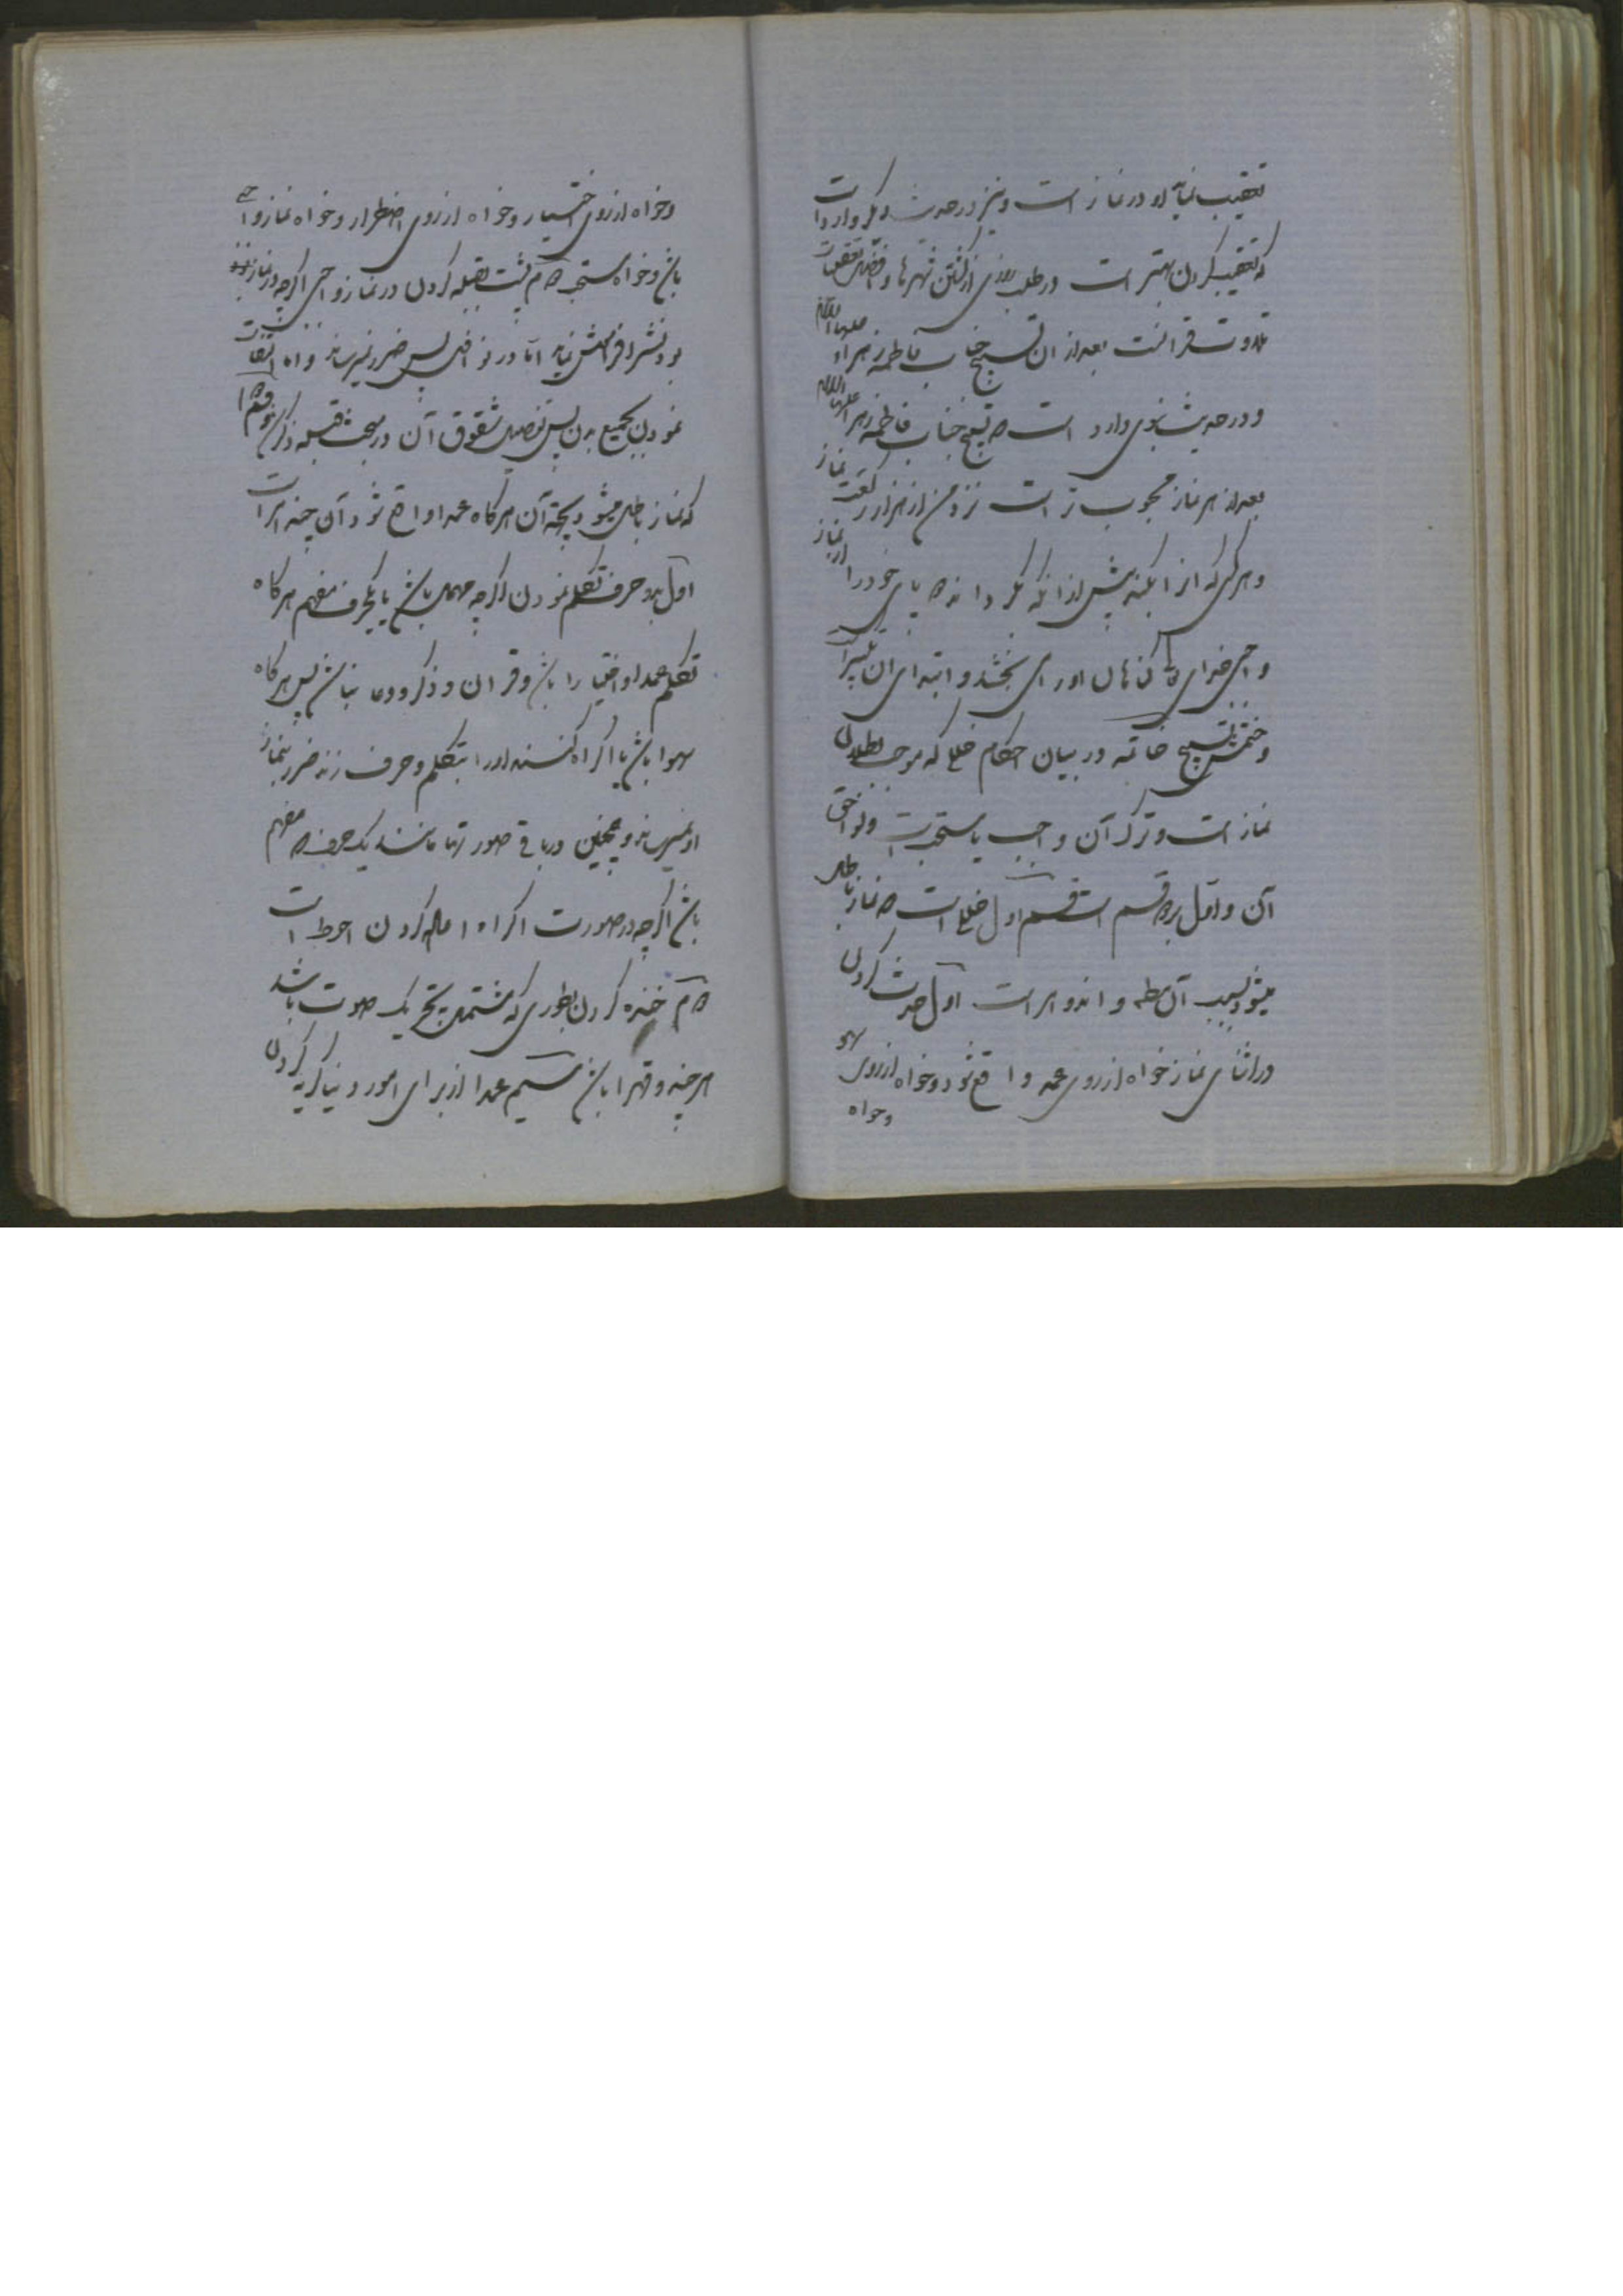 تعقیب نماید او در نماز است و نیز در حدیث دیگر وارد است
که تعقیب کردن بهتر است در طلب روزی از گشتن شهرها و افضل تعقیبات
تلاوت قرآنست بعد از آن تسبیح جناب فاطمه زهراء علیها السلام
و در حدیث نبوی وارد است که تسبیح جناب فاطمه زهرا علیها السلام
بعد از هر نماز محبوب تر است نزد من از هزار رکعت نماز
و هر کس که آنرا بکند پیش از آنکه بگرداند پای خود را از نماز
واجبی خدای گناهان او را می بخشد و ابتدای آن تکبیر است
و ختمش تسبیح خاتمه در بیان احکام خللی که موجب بطلان
نماز است و ترک آن واجب یا مستحب است و لواحق
آن و اول بر دو قسم است قسم اول خللی است که نماز باطل
میشود بسبب آن مطلقا و آن دو امر است اول حدث کردن
در اثنای نماز خواه از روی عمد واقع شود و خواه از روی سهو
وخواه
وخواه از روی اختیار و خواه از روی اضطرار و خواه نماز واجبی
باشد و خواه مستحب دوم پشت بقبله کردن در نماز واجبی اگرچه در نماز
بودنش را فراموش نماید اما در نوافل پس ضرر نمیرساند و اما التفات
نمودن بجمیع بدن پس تفصیل شقوق آن در مبحث قبله ذکر شد قسم دوم
که نماز باطل میشود بجهة آن هرگاه عمدا واقع شود آن چند امر است
اول بدو حرف تکلم نمودن اگرچه مهمل باشد یا بیکحرف مفهم هرگاه
تکلم عمدا و اختیارا باشد و قرآن و ذکر و دعا نباشد پس هرگاه
سهوا باشد یا اکراه کنند او را بتکلم و حرف زند ضرر بنماز
او نمیرساند و همچنین در باقی صور تها مانند یک حرف مفهم
باشد اگرچه در صورت اکراه اعاده کردن احوط است
دوم خنده کردن بطوری که مشتمل بر یک صوت باشد
هرچند و قهرا باشد سیم عمدا از برای امور دنیا گریه کردن